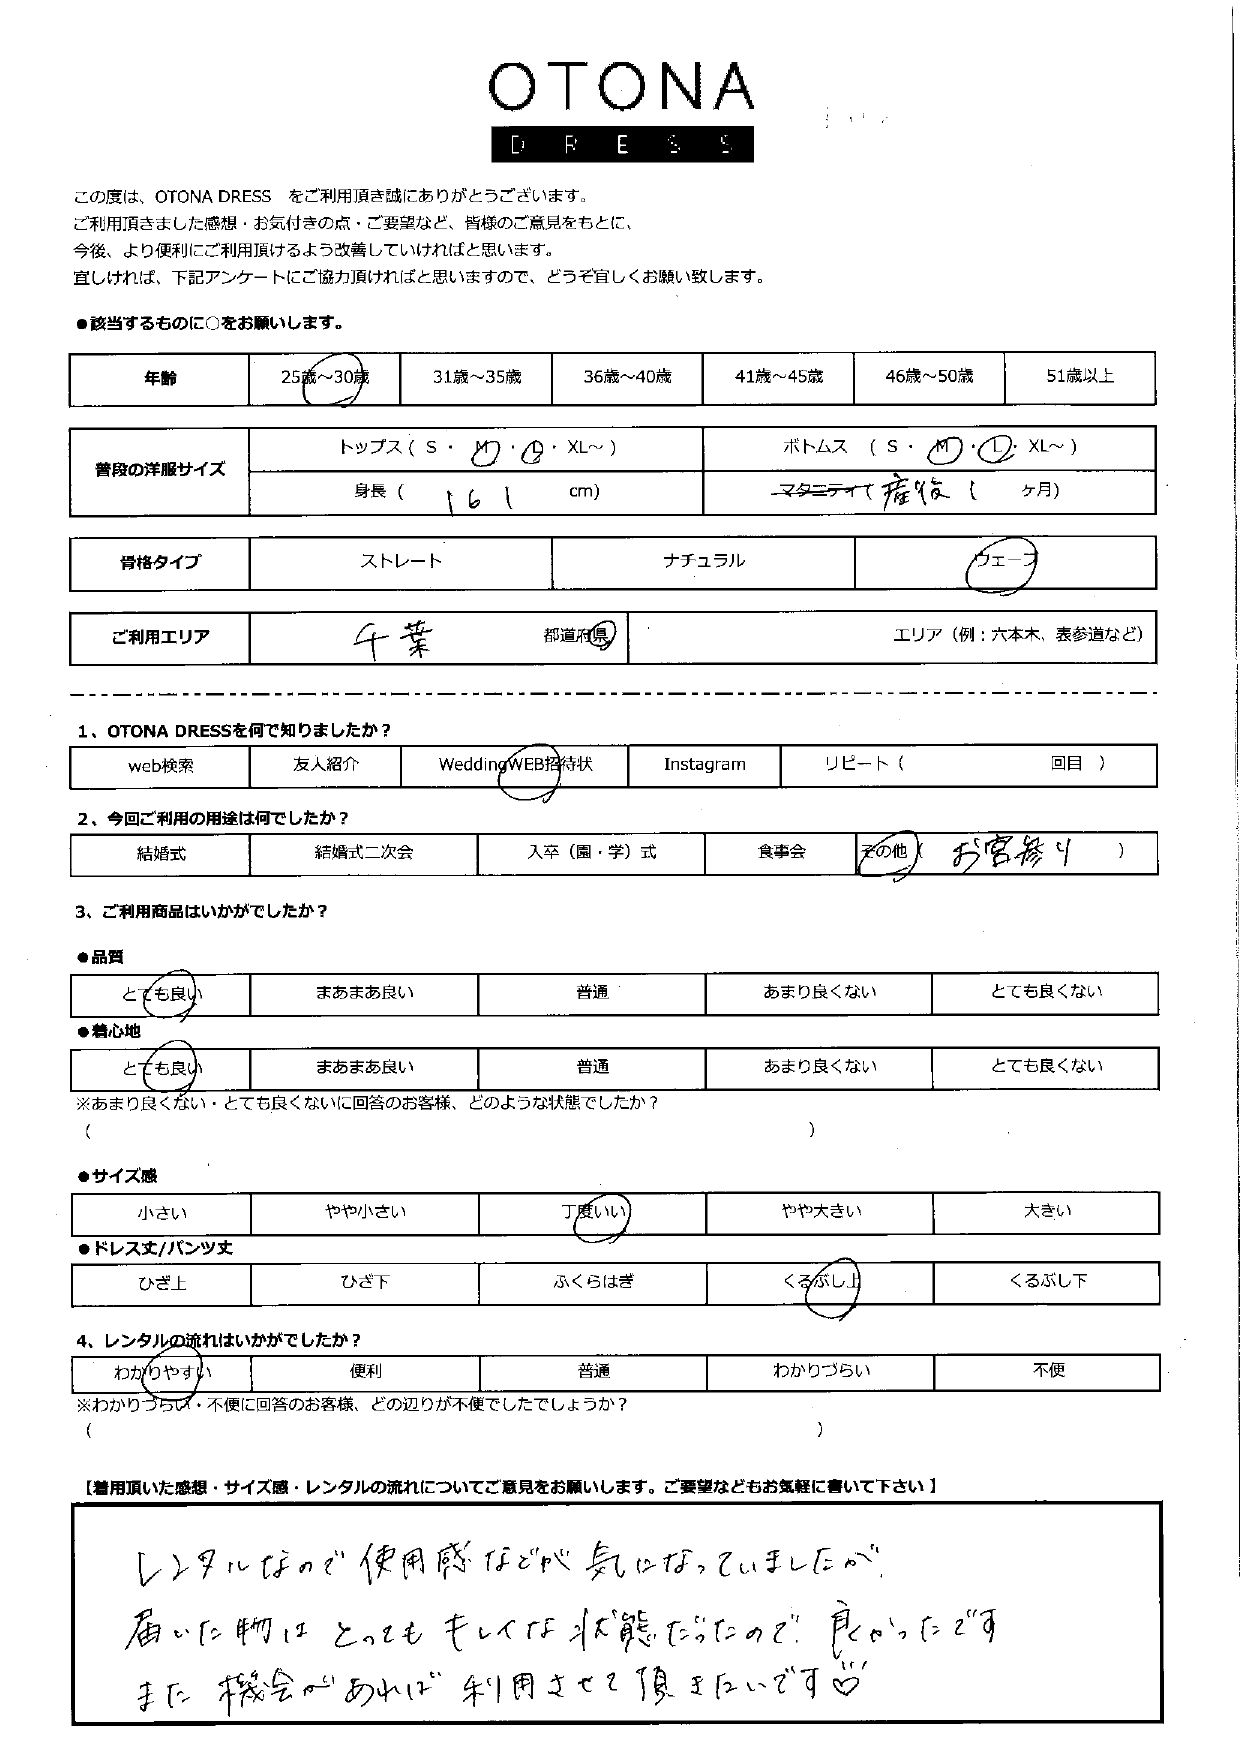 OTONA
DRESS
この度は、OTONA DRESS をご利用頂き誠にありがとうございます。
ご利用頂きました感想・お気付きの点・ご要望など、皆様のご意見をもとに、
今後、より便利にご利用頂けるよう改善していければと思います。
宜しければ、下記アンケートにご協力頂ければと思いますので、どうぞ宜しくお願い致します。
●該当するものに○をお願いします。
年齢 25歳～30歳 31歳～35歳 36歳～40歳 41歳～45歳 46歳～50歳 51歳以上
普段の洋服サイズ トップス ( S ・ M ・ L ・ XL～ ) ボトムス ( S ・ M ・ L ・ XL～ )
身長 ( 161 cm) マタニティ ( 産後 1 ヶ月)
骨格タイプ ストレート ナチュラル ウェーブ
ご利用エリア 千葉 都道府県 エリア（例：六本木、表参道など）
1、OTONA DRESSを何で知りましたか？
web検索 友人紹介 WeddingWEB招待状 Instagram リピート（ 回目 ）
2、今回ご利用の用途は何でしたか？
結婚式 結婚式二次会 入卒（園・学）式 食事会 その他（ お宮参り ）
3、ご利用商品はいかがでしたか？
●品質
とても良い まあまあ良い 普通 あまり良くない とても良くない
●着心地
とても良い まあまあ良い 普通 あまり良くない とても良くない
※あまり良くない・とても良くないに回答のお客様、どのような状態でしたか？
( )
●サイズ感
小さい やや小さい 丁度いい やや大きい 大きい
●ドレス丈/パンツ丈
ひざ上 ひざ下 ふくらはぎ くるぶし上 くるぶし下
4、レンタルの流れはいかがでしたか？
わかりやすい 便利 普通 わかりづらい 不便
※わかりづらい・不便に回答のお客様、どの辺りが不便でしたでしょうか？
( )
【着用頂いた感想・サイズ感・レンタルの流れについてご意見をお願いします。ご要望などもお気軽に書いて下さい】
レンタルなので使用感などが気になっていましたが、
届いた物はとってもキレイな状態だったので、良かったです
また機会があれば利用させて頂きたいです♡